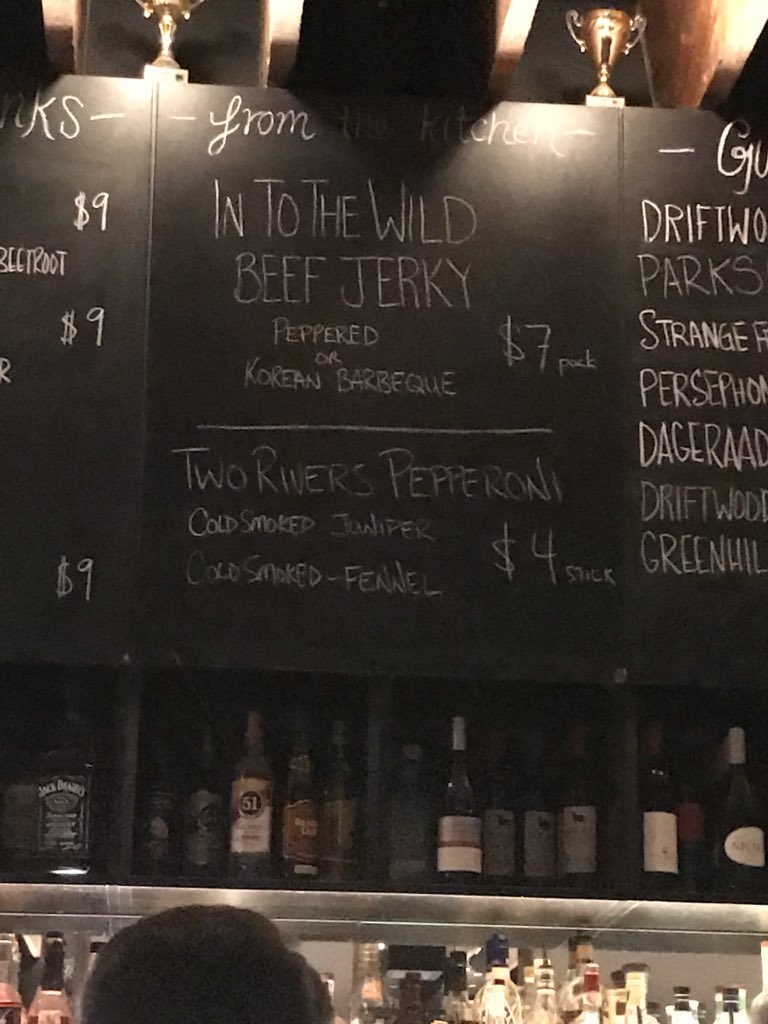 NKS-
$9
BEETROOT
$9
R
$9
- from the kitchen -
IN TO THE WILD
BEEF JERKY
PEPPERED
OR
KOREAN BARBEQUE
$7 pack
TWO RIVERS PEPPERONI
COLD SMOKED JUNIPER
COLD SMOKED - FENNEL
$4 STICK
- Gu
DRIFTWO
PARKS
STRANGE F
PERSEPHON
DAGERAAD
DRIFTWOOD
GREENHIL
JACK DANIEL'S
51